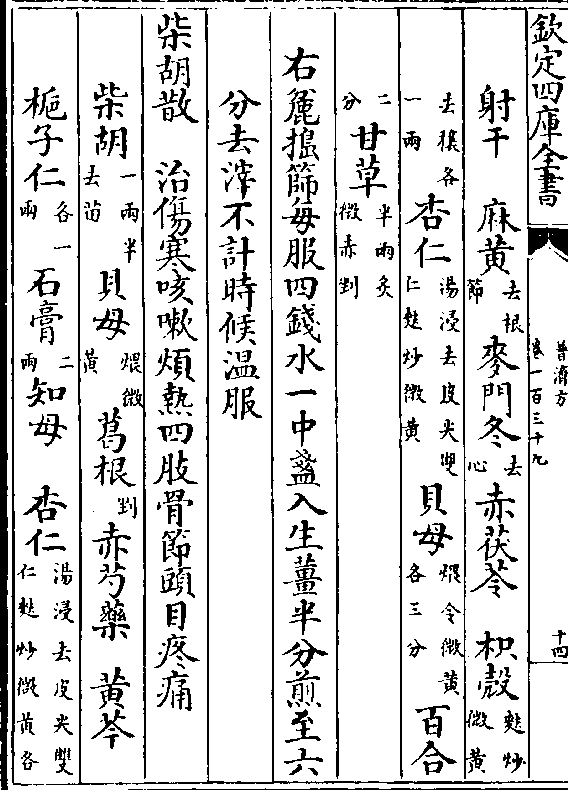 欽定四庫全書
普濟方
卷一百三十九
十四
射干 麻黃去根節 麥門冬去心 赤茯苓 枳殼麩炒微黃
去穰各一兩 杏仁湯浸去皮尖雙仁麩炒微黃 貝母煨令微黃各三分 百合
二分 甘草半兩炙微赤剉
右麄搗篩每服四錢水一中盞入生薑半分煎至六
分去滓不計時候温服
柴胡散 治傷寒咳嗽煩熱四肢骨節頭目疼痛
柴胡一兩半去苗 貝母煨微黃 葛根剉 赤芍藥 黃芩
梔子仁各一兩 石膏二兩 知母 杏仁湯浸去皮尖雙仁麩炒微黃各